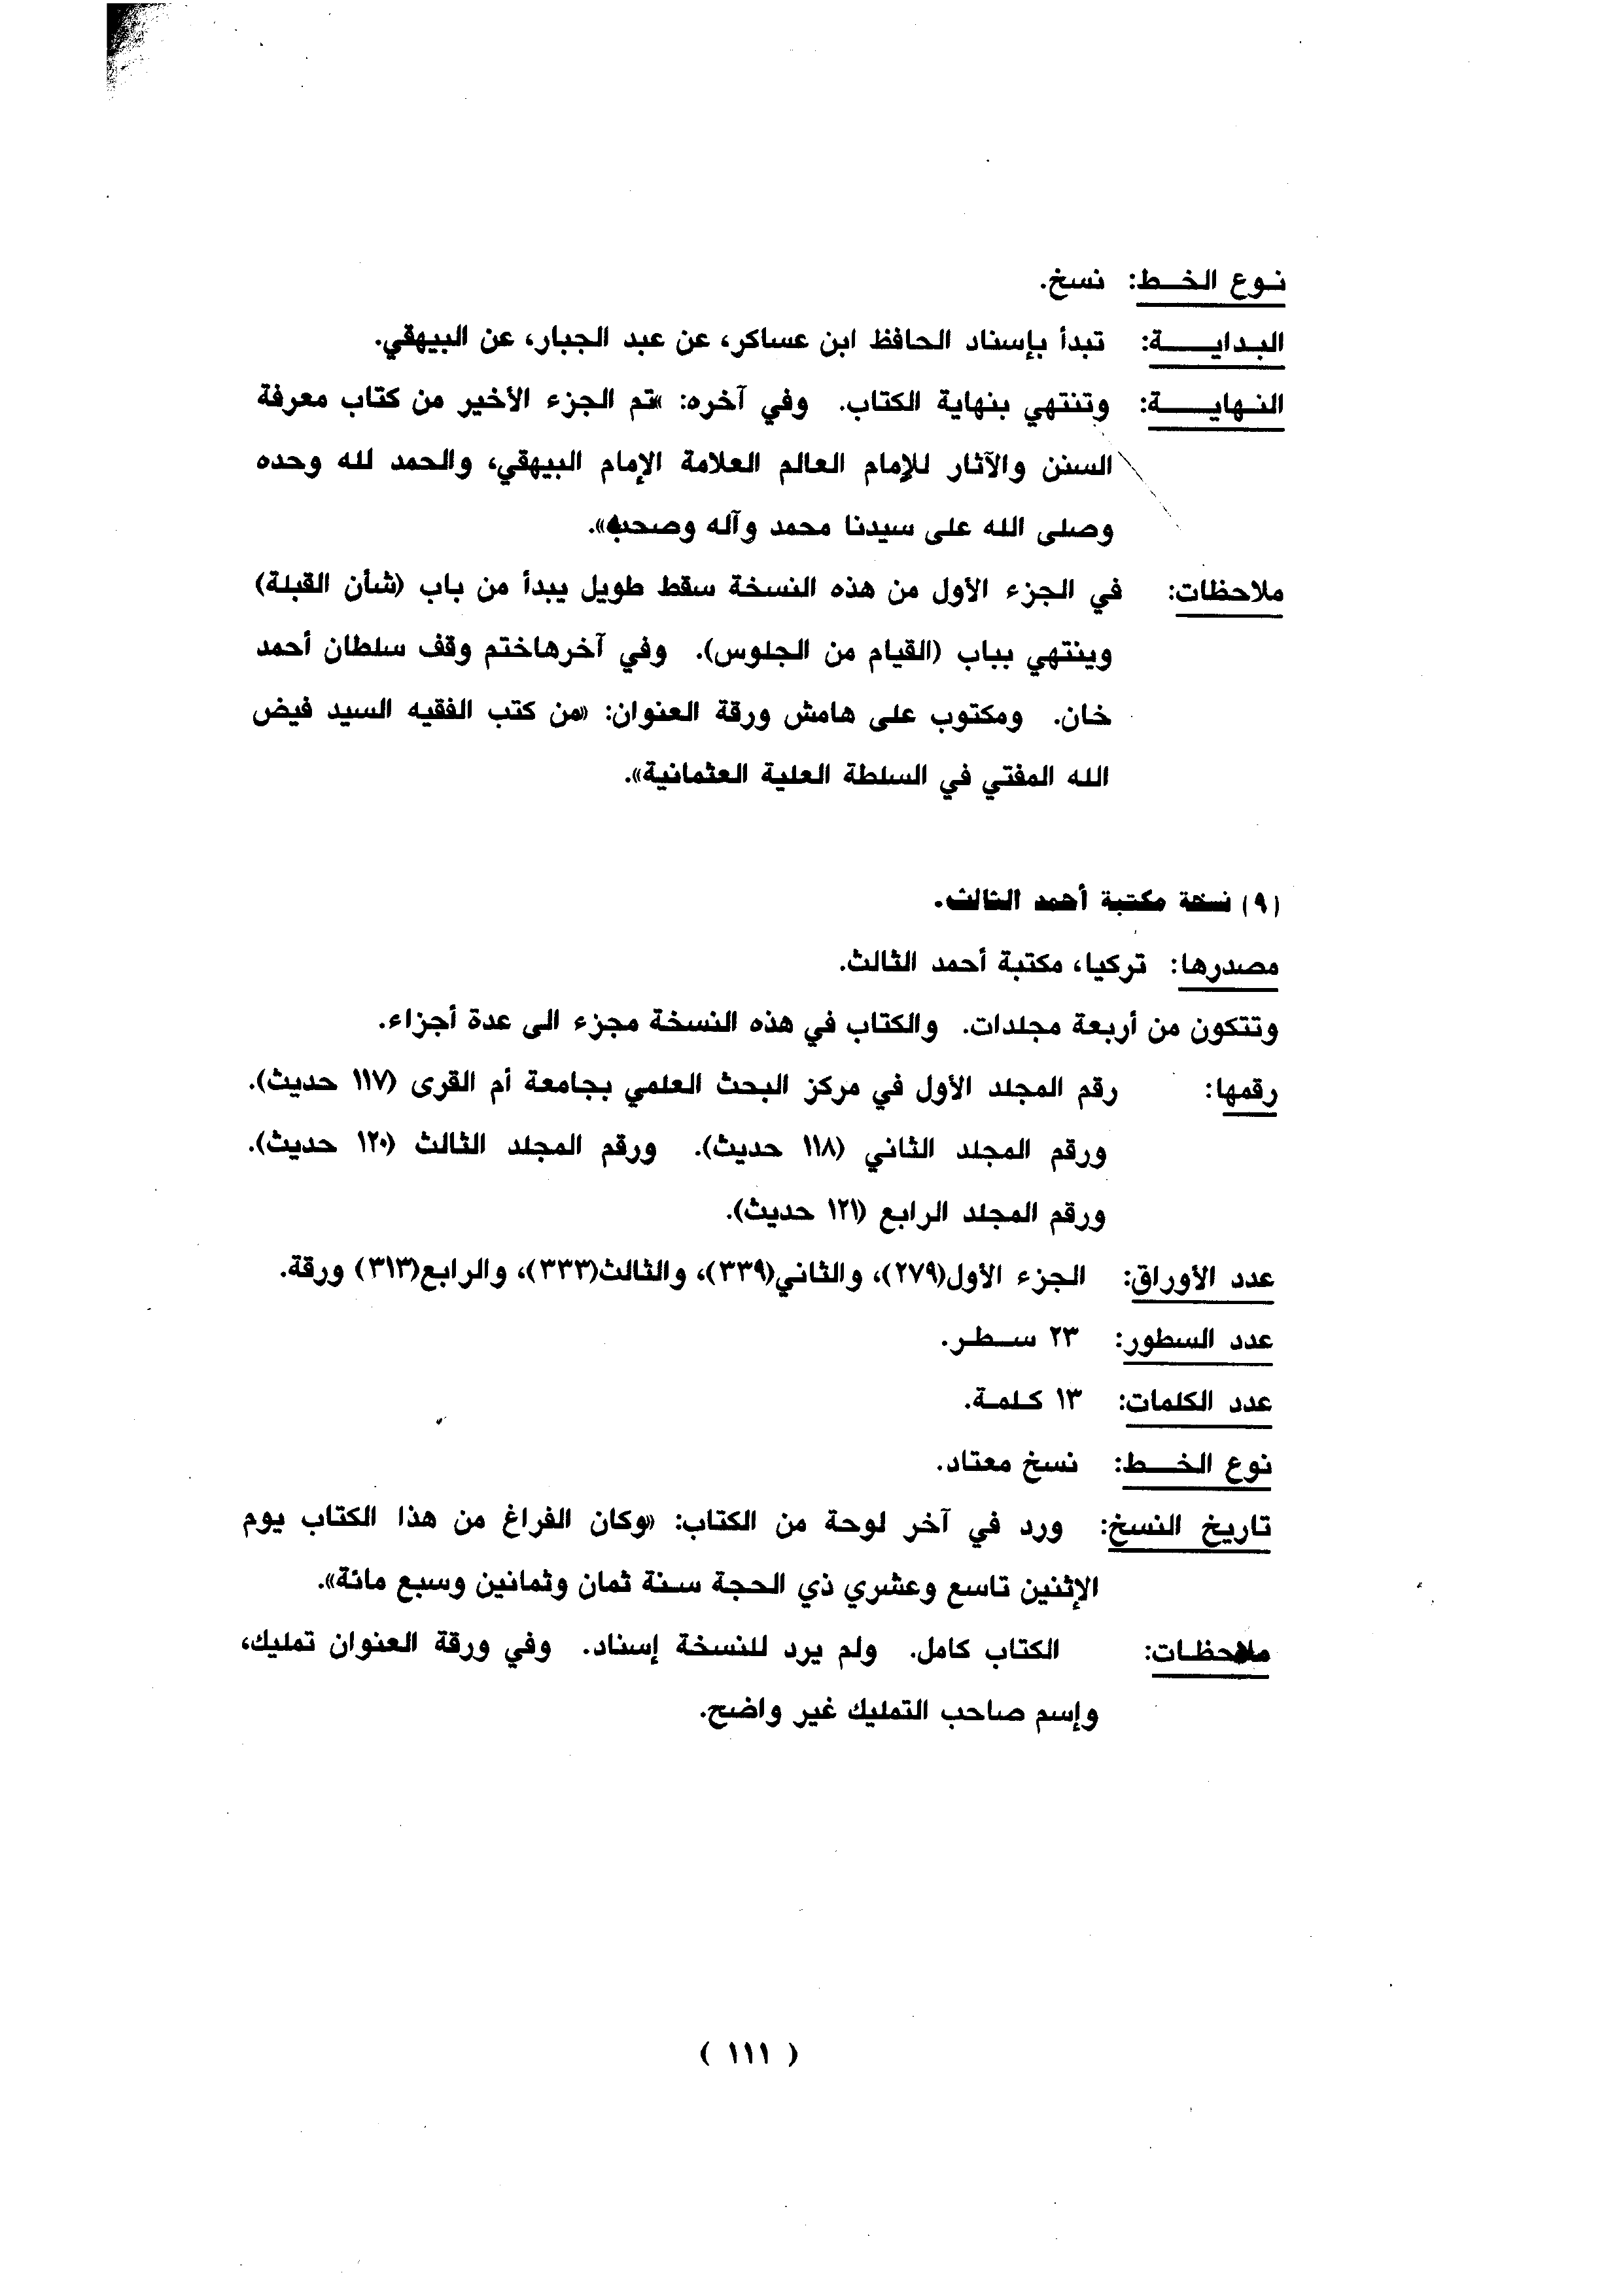 نوع الخط: نسخ.
البداية: تبدأ بإسناد الحافظ ابن عساكر، عن عبد الجبار، عن البيهقي.
النهاية: وتنتهي بنهاية الكتاب. وفي آخره: «تم الجزء الأخير من كتاب معرفة
السنن والآثار للإمام العالم العلامة الإمام البيهقي، والحمد لله وحده
وصلى الله على سيدنا محمد وآله وصحبه».
ملاحظات: في الجزء الأول من هذه النسخة سقط طويل يبدأ من باب (شأن القبلة)
وينتهي بباب (القيام من الجلوس). وفي آخرهاختم وقف سلطان أحمد
خان. ومكتوب على هامش ورقة العنوان: «من كتب الفقيه السيد فيض
الله المفتي في السلطة العلية العثمانية».
(٩) نسخة مكتبة أحمد الثالث.
مصدرها: تركيا، مكتبة أحمد الثالث.
وتتكون من أربعة مجلدات. والكتاب في هذه النسخة مجزء الى عدة أجزاء.
رقمها: رقم المجلد الأول في مركز البحث العلمي بجامعة أم القرى (١١٧ حديث).
ورقم المجلد الثاني (١١٨ حديث). ورقم المجلد الثالث (١٢٠ حديث).
ورقم المجلد الرابع (١٢١ حديث).
عدد الأوراق: الجزء الأول(٢٧٩)، والثاني(٣٣٩)، والثالث(٣٣٣)، والرابع(٣١٣) ورقة.
عدد السطور: ٢٣ سطر.
عدد الكلمات: ١٣ كلمة.
نوع الخط: نسخ معتاد.
تاريخ النسخ: ورد في آخر لوحة من الكتاب: «وكان الفراغ من هذا الكتاب يوم
الإثنين تاسع وعشري ذي الحجة سنة ثمان وثمانين وسبع مائة».
ملاحظات: الكتاب كامل. ولم يرد للنسخة إسناد. وفي ورقة العنوان تمليك،
وإسم صاحب التمليك غير واضح.
( ١١١ )